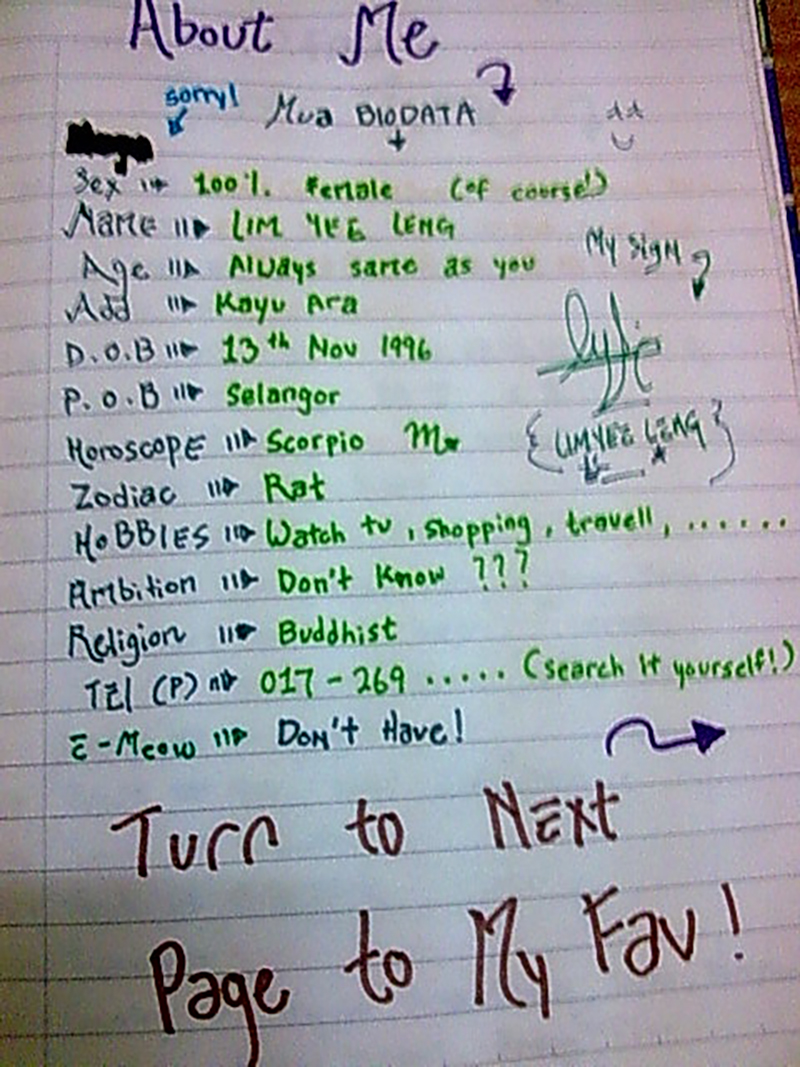 About Me
sorry!
Mua BIODATA
Sex 100%. Female (of course!)
Name LIM YEE LENG
Age Always same as you
My Sign
Add Kayu Ara
D.O.B 13th Nov 1996
P.O.B Selangor
{LIM YEE LENG}
Horoscope Scorpio
Zodiac Rat
HOBBIES Watch tv, shopping, travell, ......
Ambition Don't Know ???
Religion Buddhist
Tel (P) 017-269 ..... (search it yourself!)
E-Meow Don't Have!
Turn to Next
Page to My Fav!